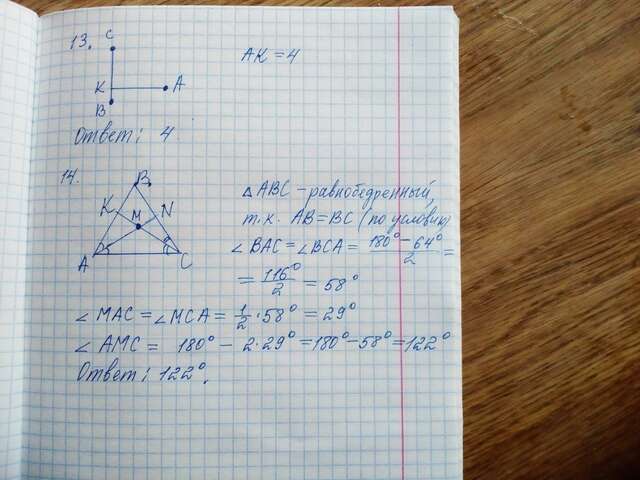 13.
C
K
A
B
AK = 4
Ответ: 4
14.
B
K
M
N
A
C
△ ABC - равнобедренный,
т.к. AB = BC (по условию)
∠ BAC = ∠ BCA = (180° - 64°)/2 =
= 116°/2 = 58°
∠ MAC = ∠ MCA = 1/2 · 58° = 29°
∠ AMC = 180° - 2·29° = 180° - 58° = 122°
Ответ: 122°.